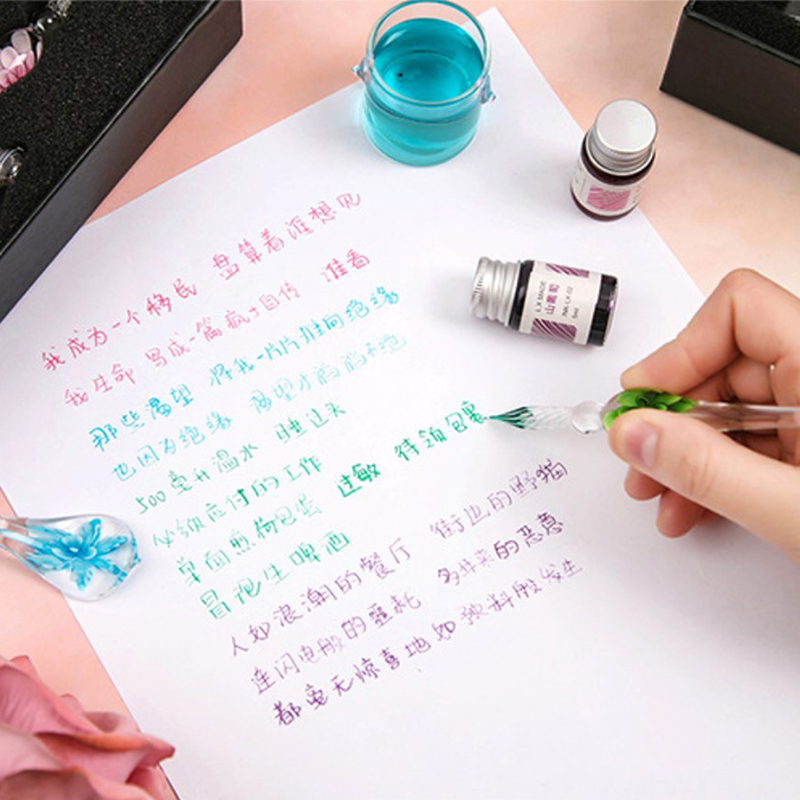 我成为一个移民 盘算着谁想见
我生命 写成一篇疯士自传 谁看
那些渴望 将我一片片推向绝缘
也因为绝缘 渴望才
500毫升温水 睡过头
必须应付的工作
单面煎物包装 过敏 待领包裹
冒泡生啤酒
人如浪潮的餐厅 街边的野猫
连闪电般的噩耗 多年来的恶意
都毫无惊喜地如预料般发生
L.X MADE
山葡萄
INK-LX-02
5ml